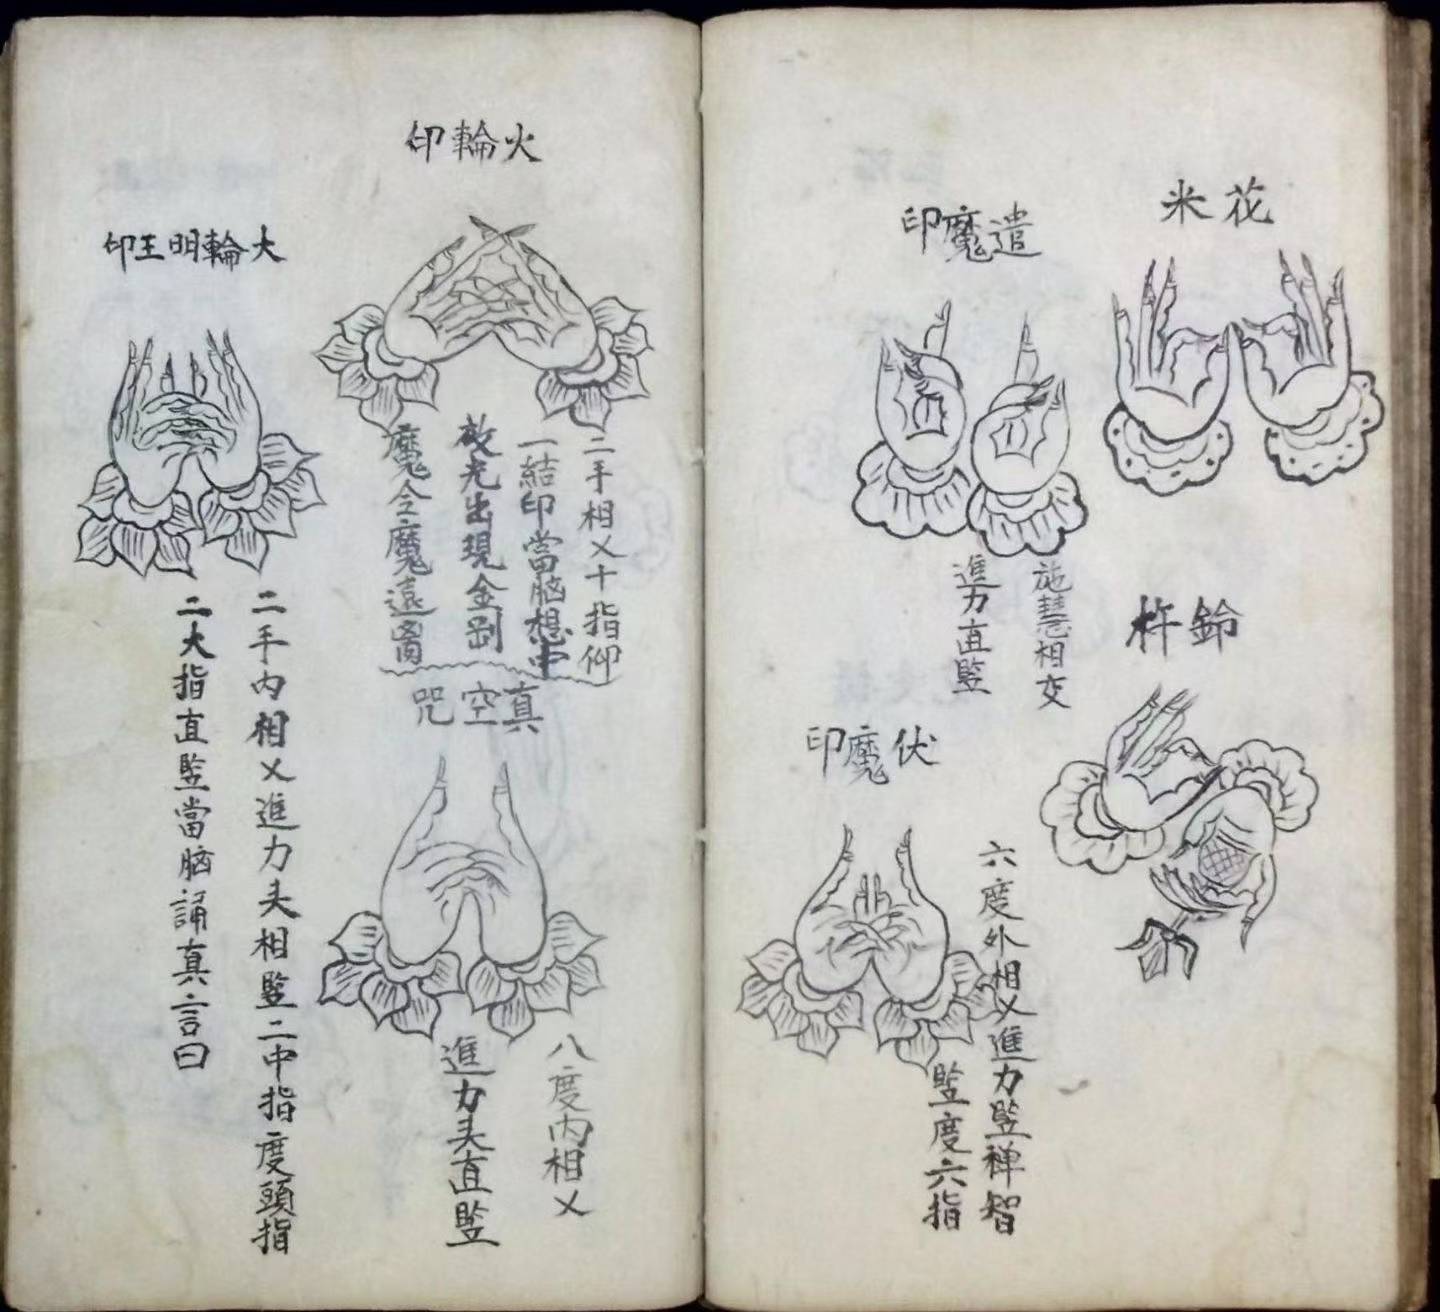 花米
鈴杵
遣魔印
施慧相交
進力直竪
伏魔印
六度外相乂進力竪禅智
竪度六指
火輪印
二手相乂十指仰
一結印當脑想中
放光出現金剛
魔令魔遠
真空咒
八度内相乂
進力头直竪
大輪明王印
二手内相乂進力头相竪二中指度頭指
二大指直竪當脑誦真言曰